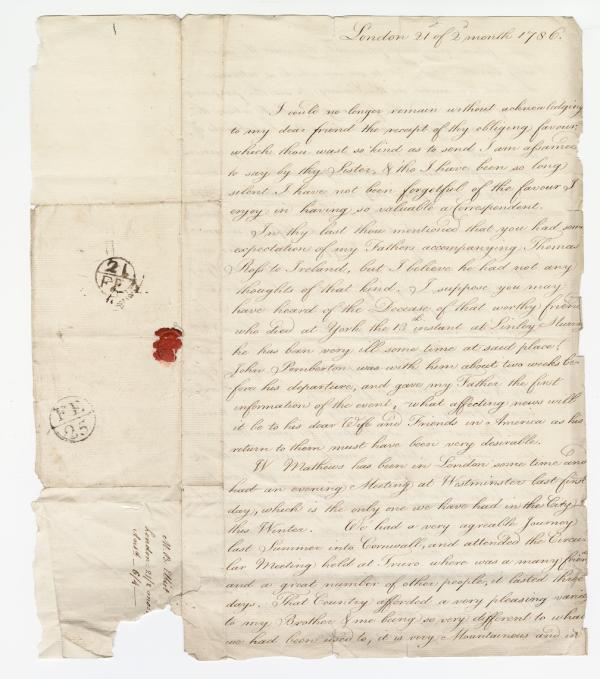 London 21st of 2d month 1786.
I could no longer remain without acknowledging
to my dear friend the receipt of thy obliging favour,
which thou wast so kind as to send I am assamed
to say by thy Sister, & tho I have been so long
silent I have not been forgetful of the favour I
enjoy in having so valuable a Correspondent.
In thy last thou mentioned that you had some
expectation of my Fathers accompanying Thomas
Ross to Ireland, but I believe he had not any
thoughts of that kind. I suppose you may
have heard of the Decease of that worthy friend
who died at York the 13th instant at Linley
he has been very ill some time at said place.
John Pemberton was with him about two weeks be-
fore his departure, and gave my Father the first
information of the event, what affecting news will
it be to his dear Wife and Friends in America as his
return to them must have been very desirable.
W Mathews has been in London some time and
had an evening Meeting at Westminster last first
day, which is the only one we have had in the City
this Winter. We had a very agreable Journey
last Summer into Cornwall, and attended the Circu-
lar Meeting held at Truro where was a many
and a great number of other people, it lasted three
days. That Country afforded a very pleasing
to my Brother & me being so very different to what
we had been used to, it is very Mountainous and in
21
FE
FE
25
London 21/2